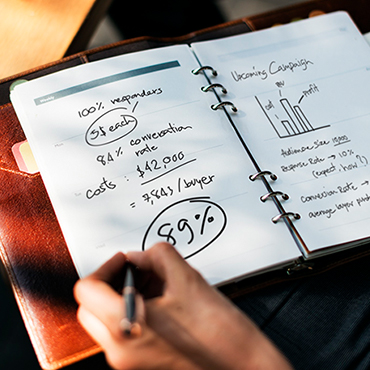 100% responders
$5 each
84% conversation
rate
costs : $42,000
= 784$ / buyer
89%
Upcoming Campaign
profit
Audience Size 10,000
Response Rate → 10%
(expect : how?)
conversion Rate →
average buyer